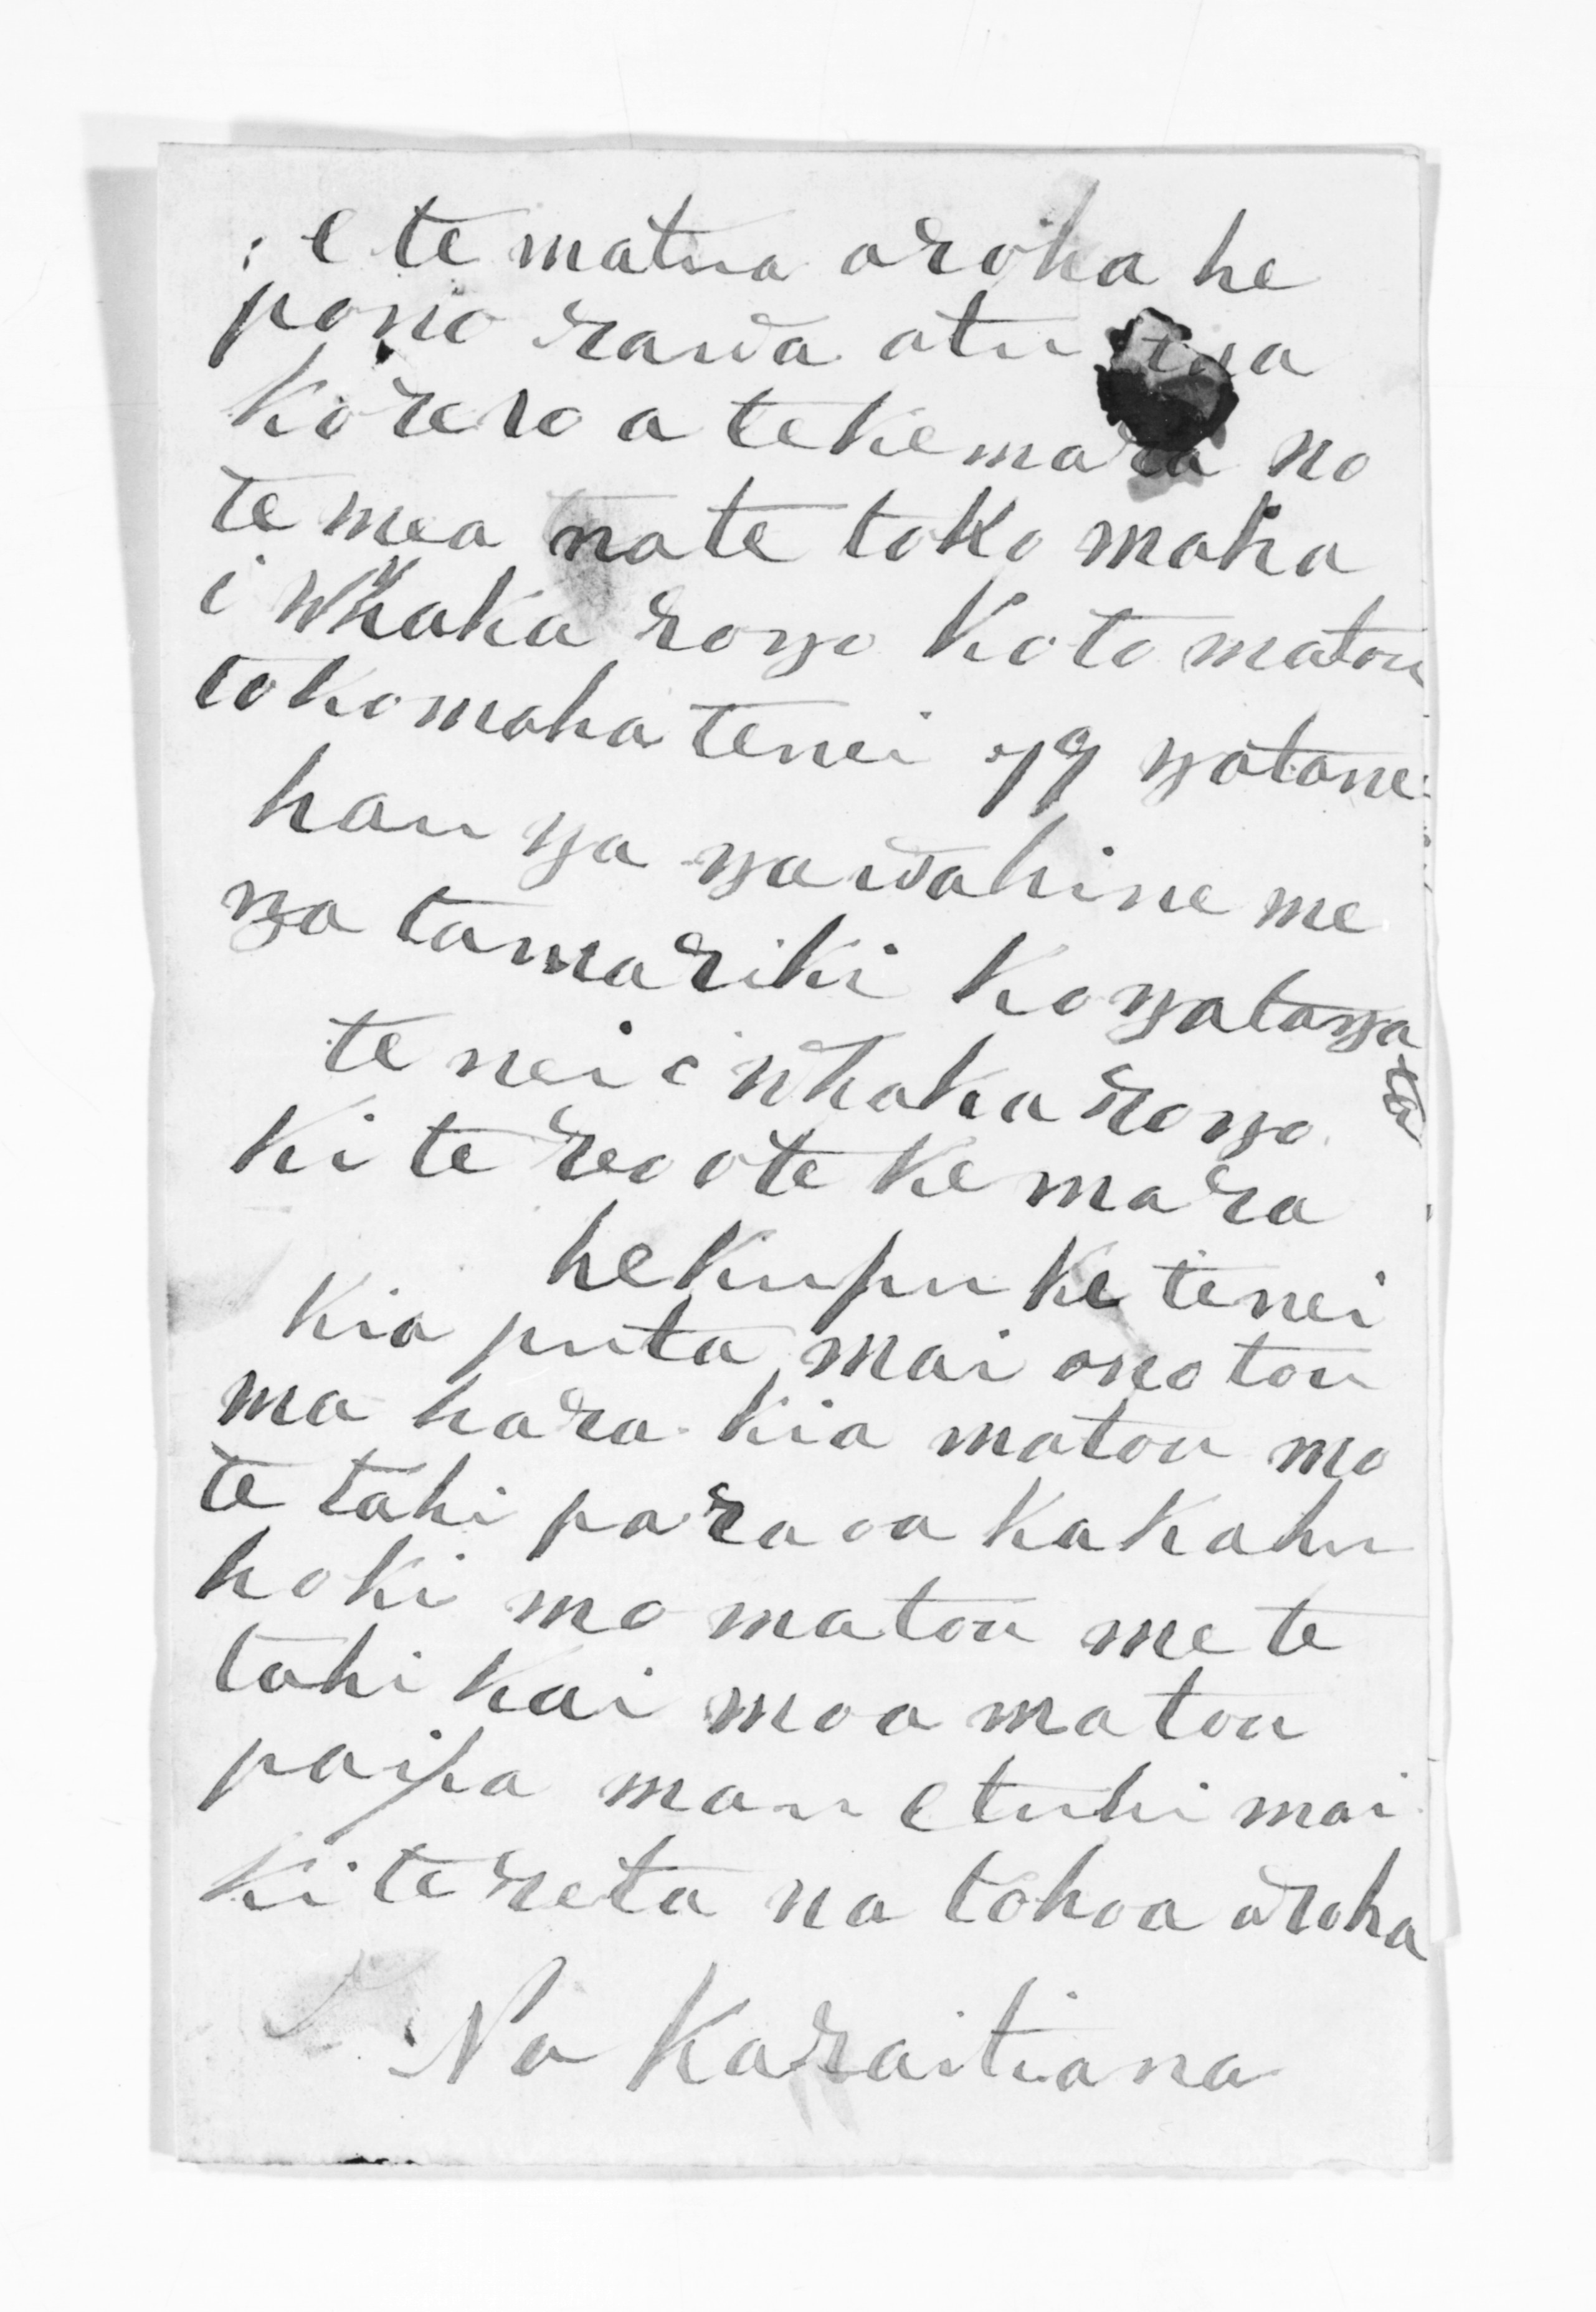 e te matua aroha he
pono rawa atu nga
korero a te Kemara no
te mea na te toko maha
i Whaka rongo Ko to matou
tokomaha tenei 79 ngatane
hau nga nga wahine me
nga tamariki Ko nga tanga
ta
te nei i whaka rongo
Ki te reo ote Kemara
he Kupu ke tenei
Kia puta mai ono tou
ma hara kia matou mo
te tahi paraoa Kakahu
hoki mo matou me te
tahi Kai moa matou
paipa mau e tuhi mai
Ki te reta na to hoa aroha
Na Karaitiana